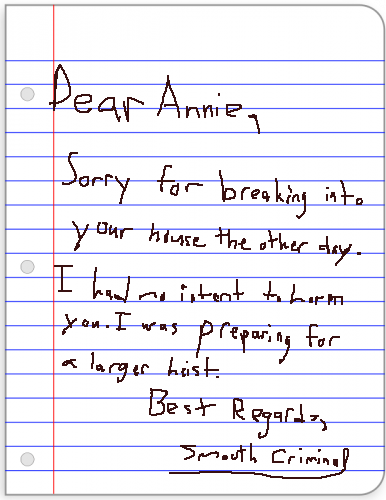 Dear Annie,
Sorry for breaking into
your house the other day.
I had no intent to harm
you. I was preparing for
a larger heist.
Best Regards,
Smouth Criminal